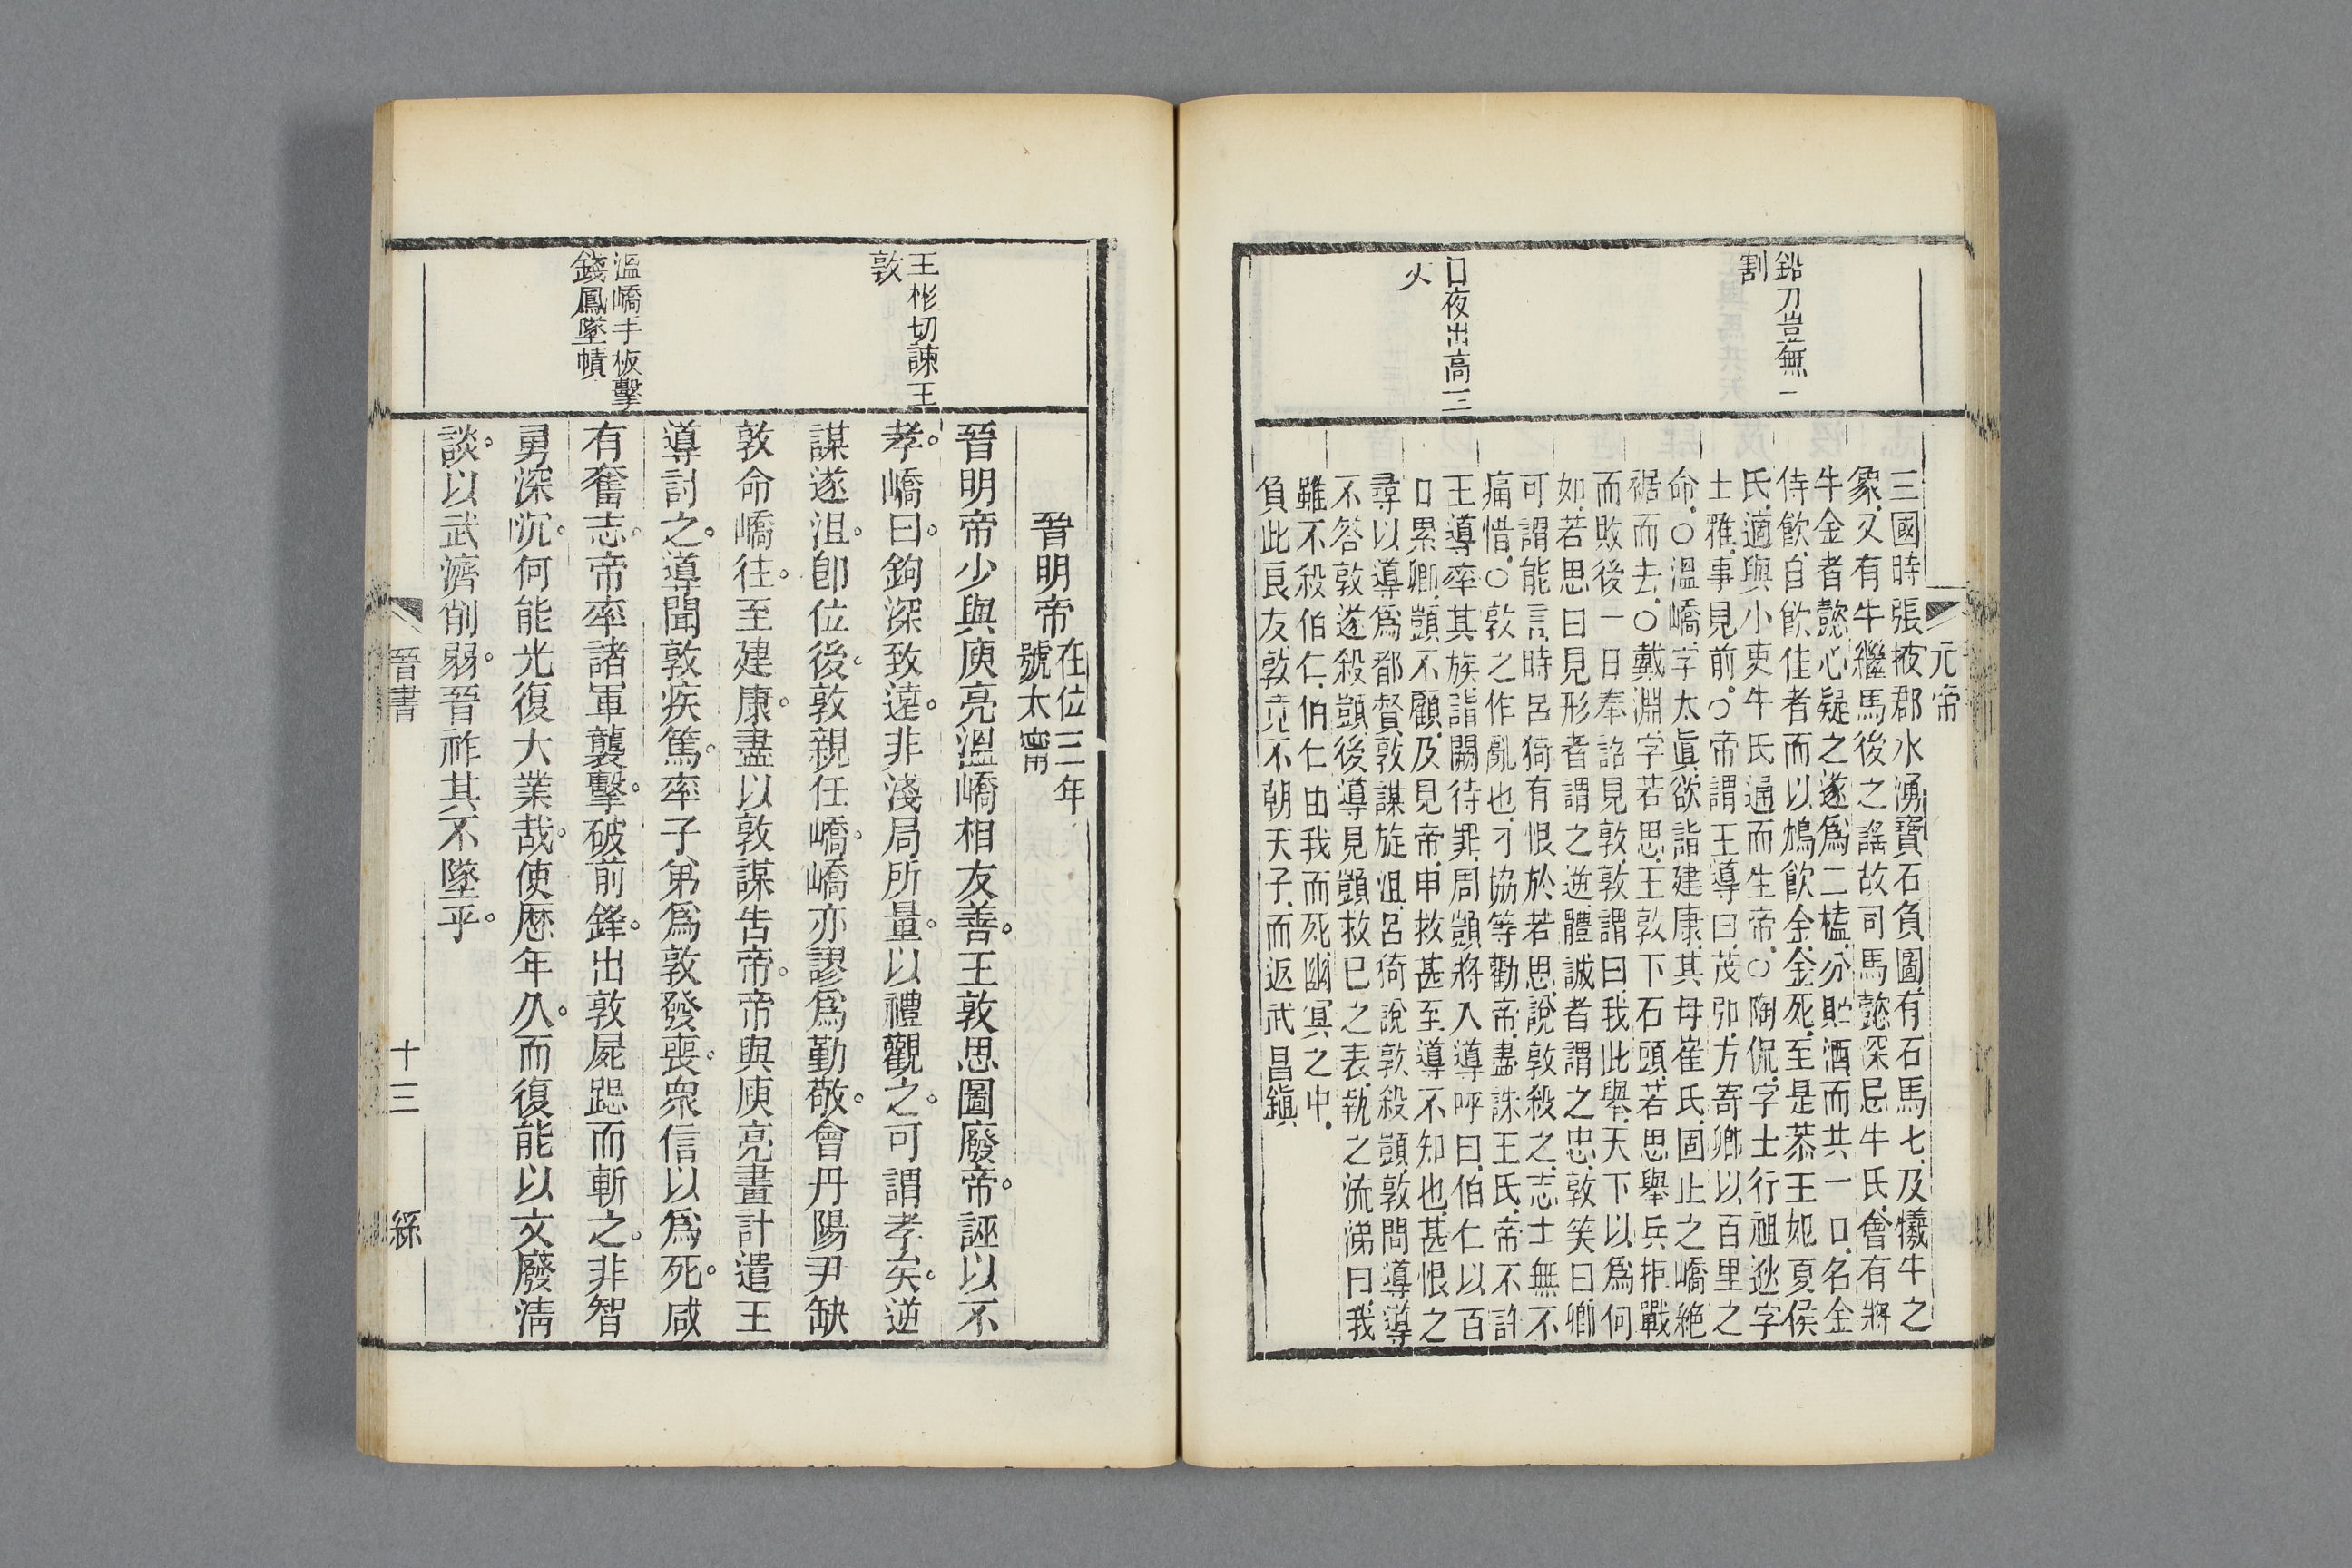 元帝
鉛刀豈無一
割
口夜出高三
火
三國時張掖郡水湧寶石負圖有石馬七及犧牛之
象又有牛繼馬後之謠故司馬懿深忌牛氏會有將
牛金者懿心疑之遂爲二榼分貯酒而共一口名金
侍飲自飲佳者而以鴆飲金金死至是恭王妃夏侯
氏適與小吏牛氏通而生帝○陶侃字士行祖逖字
士雅事見前○帝謂王導曰茂弘方寄卿以百里之
命○溫嶠字太眞欲詣建康其母崔氏固止之嶠絶
裾而去○戴淵字若思王敦下石頭若思舉兵拒戰
而敗後一日奉詔見敦敦謂曰我此舉天下以爲何
如若思曰見形者謂之逆體誠者謂之忠敦笑曰卿
可謂能言時呂猗有恨於若思說敦殺之志士無不
痛惜○敦之作亂也刁協等勸帝盡誅王氏帝不許
王導率其族詣闕待罪周顗將入導呼曰伯仁以百
口累卿顗不顧及見帝申救甚至導不知也甚恨之
尋以導爲都督敦謀旋沮呂猗說敦殺顗敦問導導
不答敦遂殺顗後導見顗救已之表執之流涕曰我
雖不殺伯仁伯仁由我而死幽冥之中
負此良友敦竟不朝天子而返武昌鎭
王彬切諫王
敦
溫嶠手板擊
錢鳳墜幘
晉明帝在位三年
號太甯
晉明帝少與庾亮溫嶠相友善王敦思圖廢帝誣以不
孝嶠曰鉤深致遠非淺局所量以禮觀之可謂孝矣逆
謀遂沮卽位後敦親任嶠嶠亦謬爲勤敬會丹陽尹缺
敦命嶠往至建康盡以敦謀告帝帝與庾亮畫計遣王
導討之導聞敦疾篤率子弟爲敦發喪衆信以爲死咸
有奮志帝率諸軍襲擊破前鋒出敦屍跽而斬之非智
勇深沉何能光復大業哉使歷年久而復能以文廢淸
談以武濟削弱晉祚其不墜乎
晉書
十三
繇